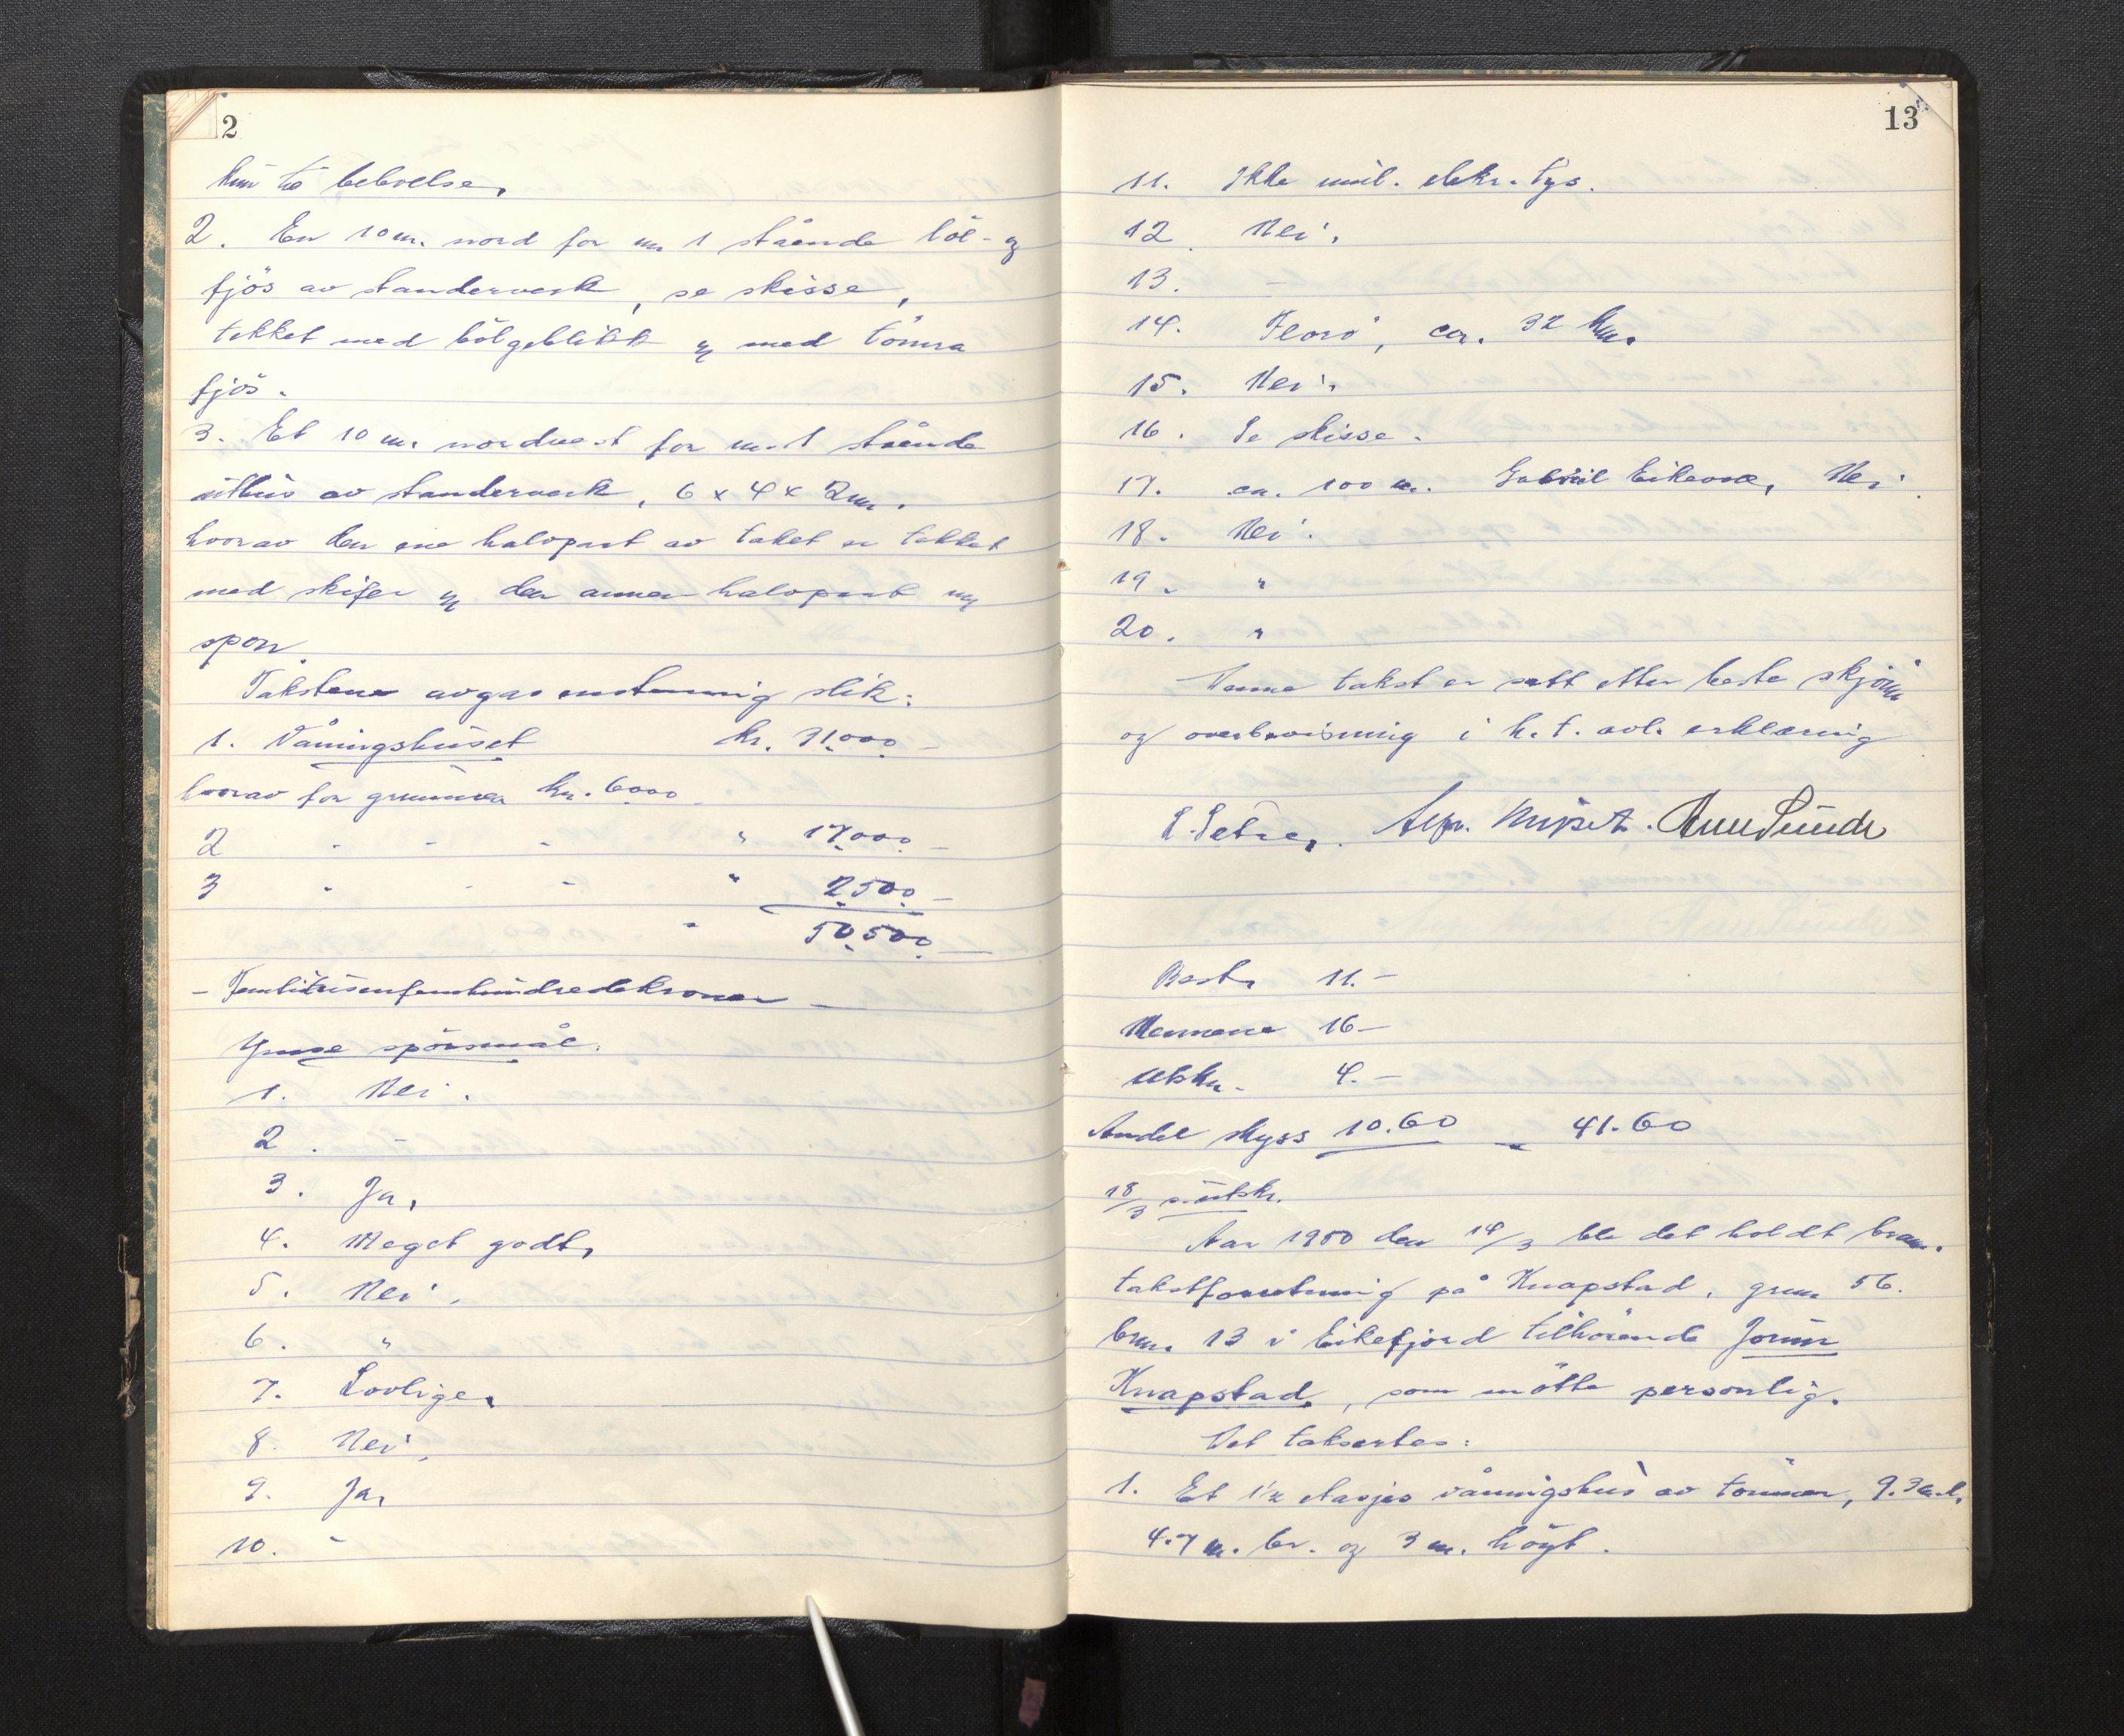 2
kun to bebvelse.
2. En 10 m. nord for nr 1 stående löe- og
fjös av standerverk, se skisse,
tekket med bölgeblikk og med tömra
fjös.
3. Et 10 m. nordvest for nr. 1 stående
uthus av standerverk, 6 x 4 x 2 m.
hvorav den ene halvpart av taket er tekket
med skifer og den annen halvpart m/
spon.
Takstene avgas enstemmig slik:
1. Våningshuset kr. 31.000 –
hvorav for grunnen kr. 6000 –
2 - - - " 17.000 –
3 - - - " 2500 –
" 50.500 –
– Femtitusenfemhundredekroner –
Ymse spörsmål.
1. Nei.
2. –
3. Ja,
4. Meget godt,
5. Nei,
6. "
7. Lovlige,
8. Nei,
9. Ja,
10. –
13
11. Ikke innl. elektr. lys.
12. Nei,
13. –
14. Florö, ca. 32 km.
15. Nei,
16. Se skisse.
17. ca. 100 m. Gabriel Eikevoe, Nei.
18. Nei.
19. "
20. "
Denne takst er satt etter beste skjönn
og overbevisning i h. t. avl. erklæring
L. Setre, Asgr. Anne Sunde
Best, 11.–
Mennene 16–
Utskr. 4.–
Andel skyss 10.60 = 41.60
18/3 s. utskr.
Aar 1950 den 14/3 ble det holdt brann.
takstforretning på Knapstad, grnr 56.
brnr. 13 i Eikefjord tilhörende Jorunn
Knapstad, som mötte personlig.
Det taksertes:
1. Et 1½ etasjes våningshus av tömmer, 9.3 m. l.
4.7 m. br. og 3 m. höyt.